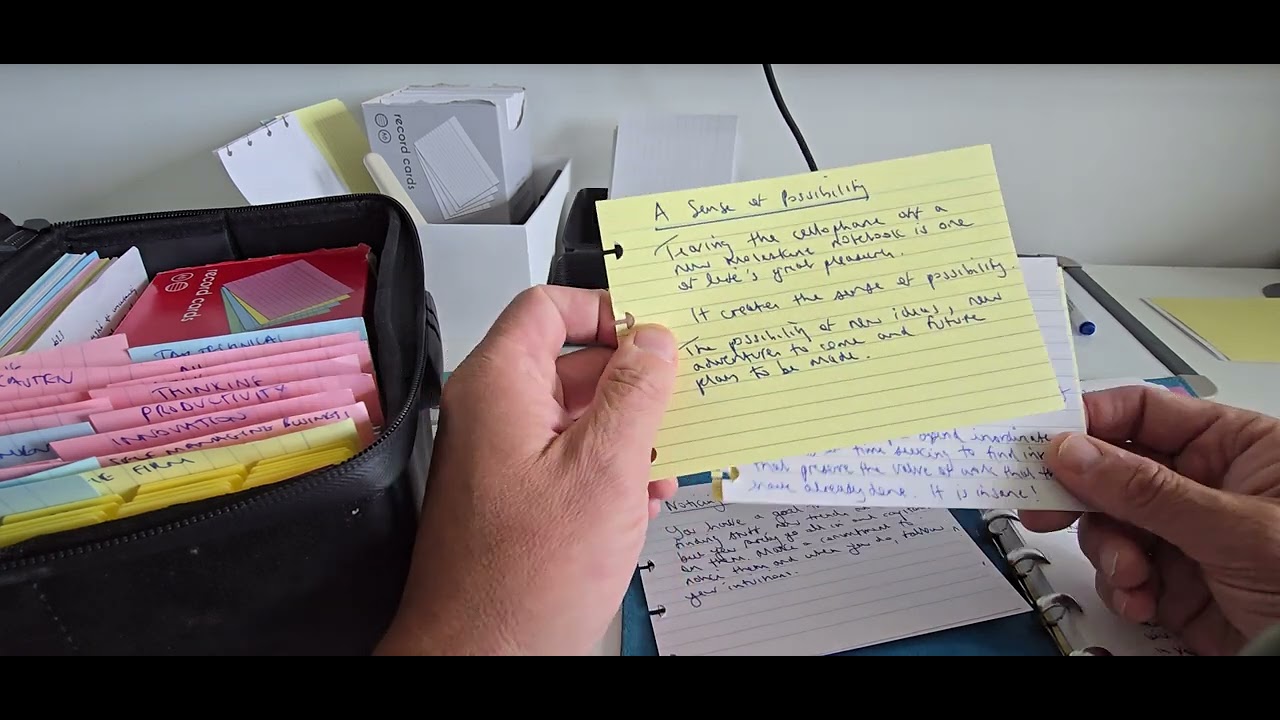 record cards
A6
record cards
A Sense of Possibility
Tearing the cellophane off a
new Moleskine notebook is one
of life's great pleasures.
It creates the sense of possibility.
The possibility of new ideas, new
adventures to come and future
plans to be made.
TAX TECHNICAL
CAUTION
THINKING
PRODUCTIVITY
INNOVATION
SELF MANAGING BUSINESS
FIRM
spend inordinate
time seeking to find
that preserve the value of work that
have already done. It is insane!
Noticing
You have a good
finding stuff, new
but you rarely go all in and
on them. Make a commitment to
notice them and when you do, follow
your intuitions.